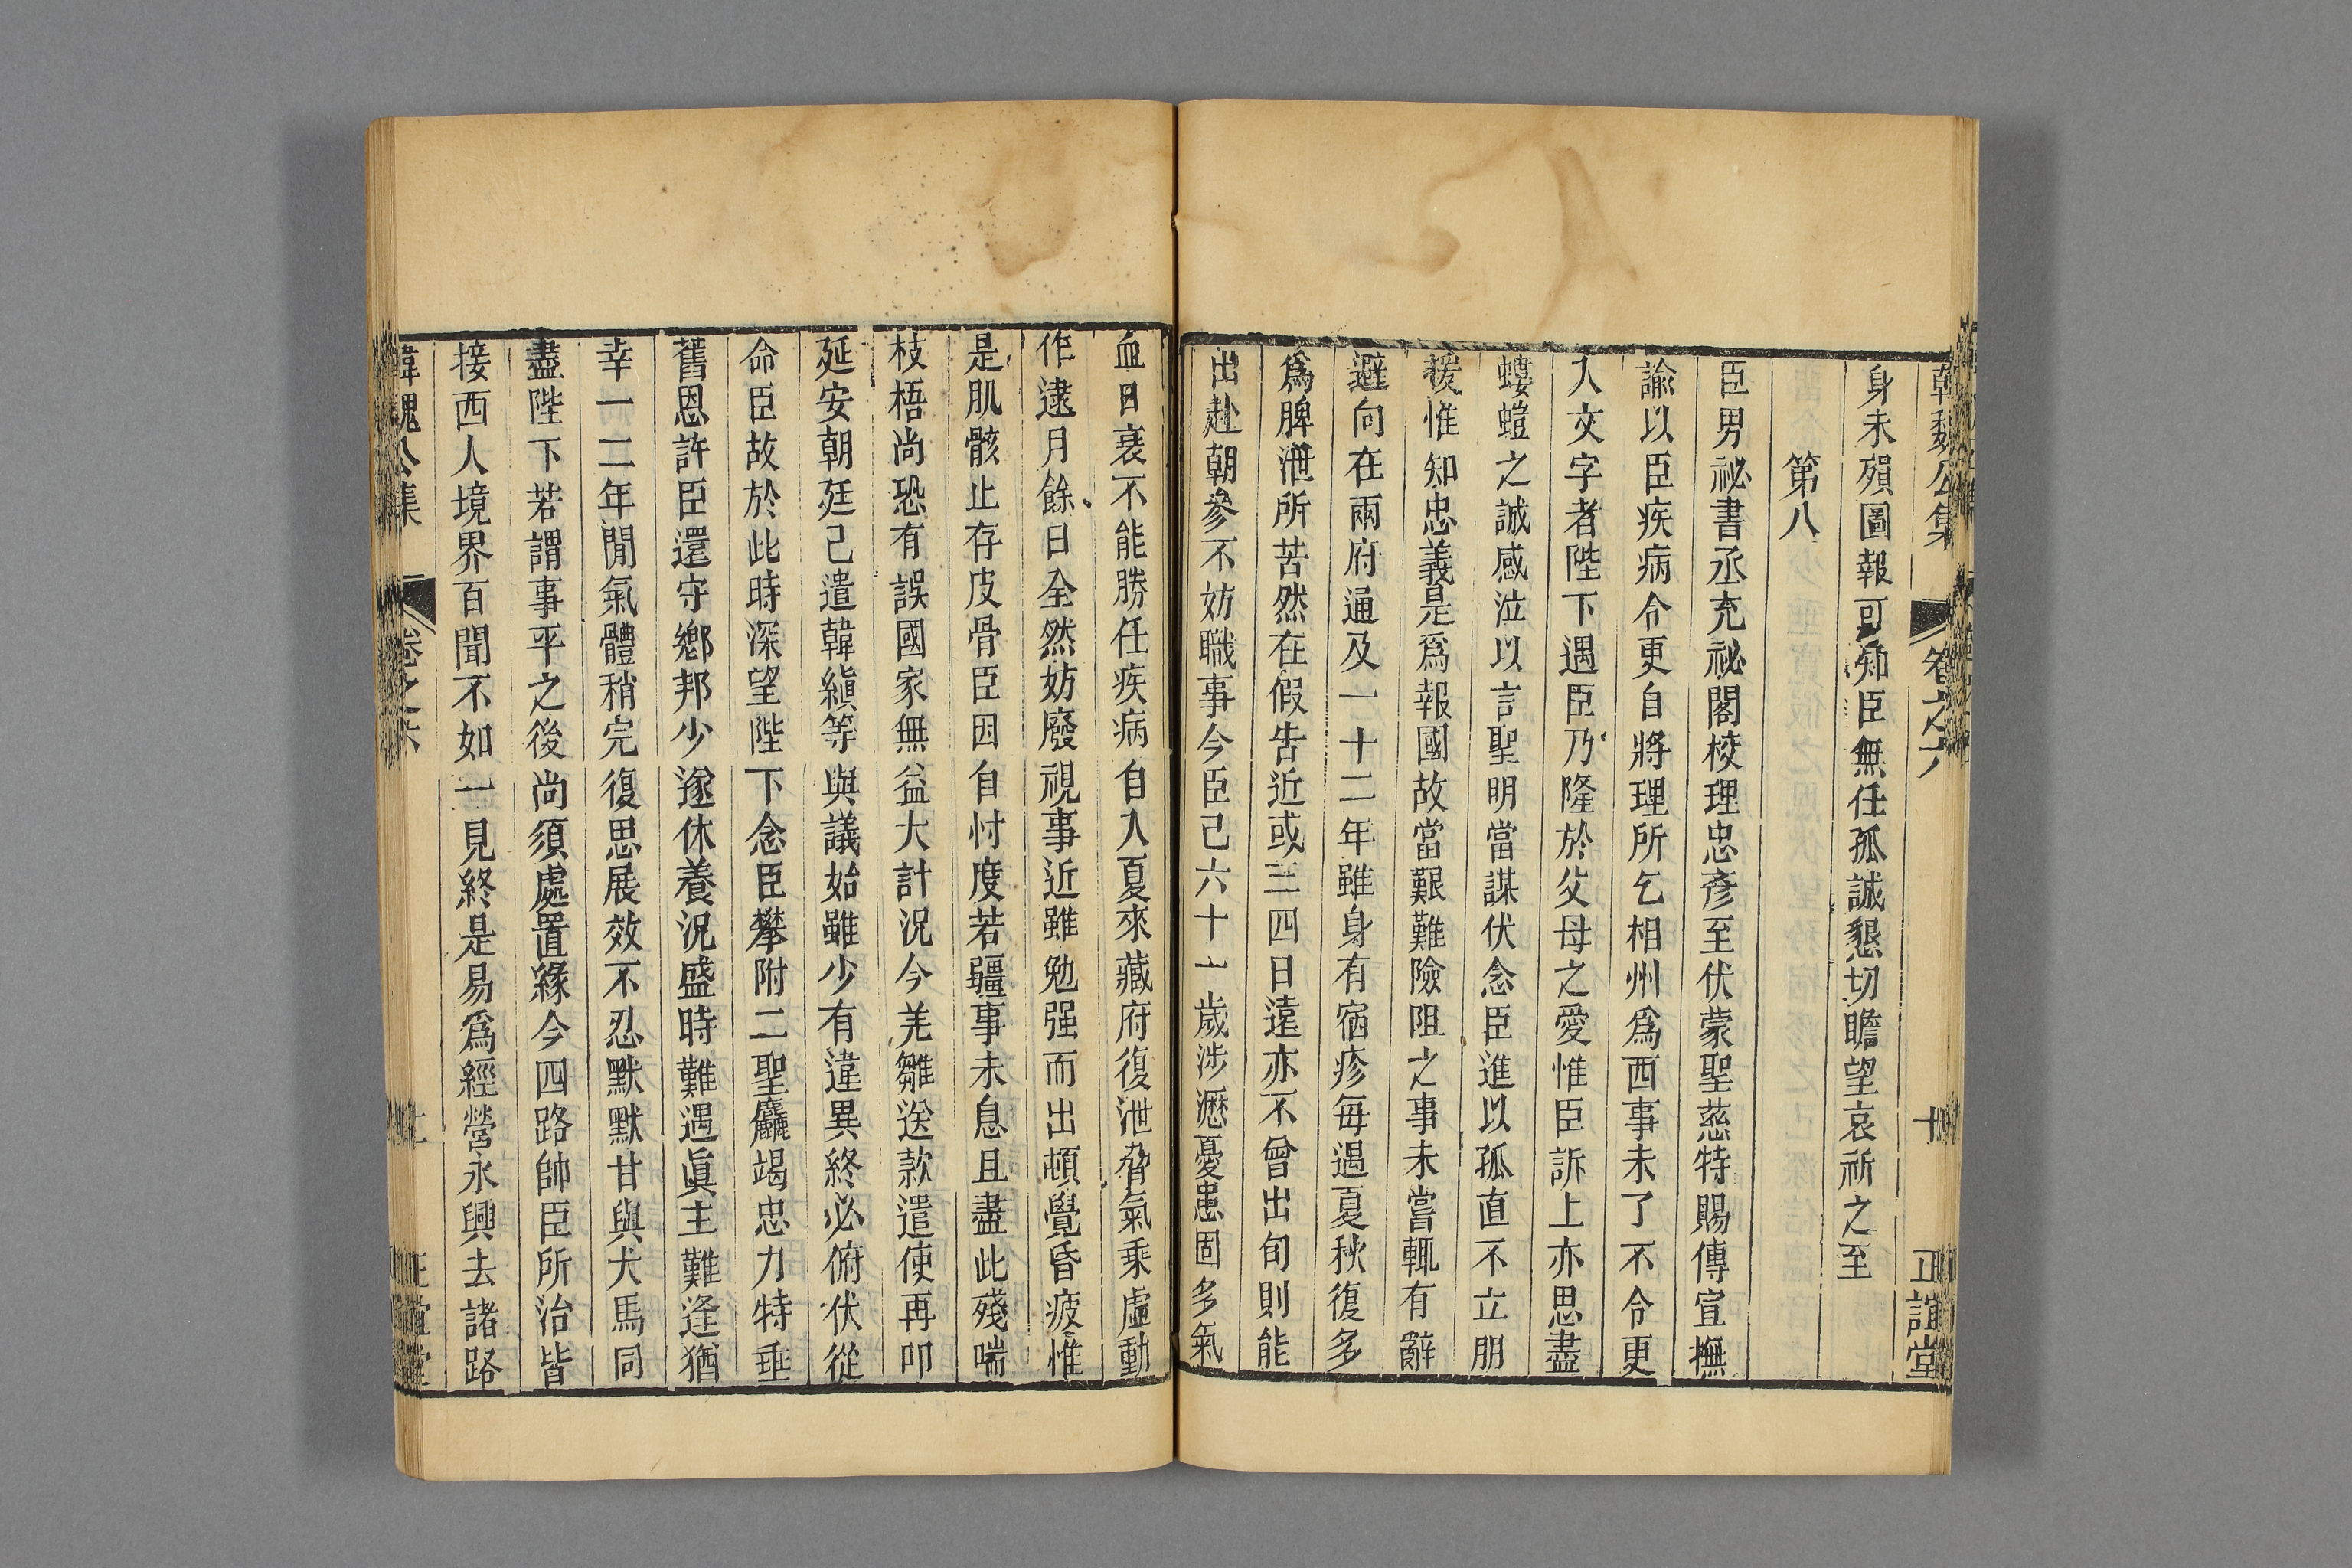 韓魏公集 卷之六 十 正誼堂
身未殞圖報可知臣無任孤誠懇切瞻望哀祈之至
第八
臣男祕書丞充祕閣校理忠彥至伏蒙聖慈特賜傳宣撫
諭以臣疾病令更自將理所乞相州爲西事未了不令更
入文字者陛下遇臣乃隆於父母之愛惟臣訴上亦思盡
螻螘之誠感泣以言聖明當諒伏念臣進以孤直不立朋
援惟知忠義是爲報國故當艱難險阻之事未嘗輒有辭
避向在兩府通及一十二年雖身有宿疹每遇夏秋復多
爲脾泄所苦然在假告近或三四日遠亦不曾出旬則能
出赴朝參不妨職事今臣已六十一歲涉歷憂患固多氣
血日衰不能勝任疾病自入夏來藏府復泄脅氣乘虛動
作逮月餘日全然妨廢視事近雖勉强而出頓覺昏疲惟
是肌骸止存皮骨臣因自忖度若疆事未息且盡此殘喘
枝梧尚恐有誤國家無益大計況今羌雛送款遣使再叩
延安朝廷已遣韓縝等與議始雖少有違異終必俯伏從
命臣故於此時深望陛下念臣攀附二聖麤竭忠力特垂
舊恩許臣還守鄉邦少遂休養況盛時難遇眞主難逢猶
幸一二年閒氣體稍完復思展效不忍默默甘與犬馬同
盡陛下若謂事平之後尚須處置緣今四路帥臣所治皆
接西人境界百聞不如一見終是易爲經營永興去諸路
韓魏公集 卷之六 十一 正誼堂